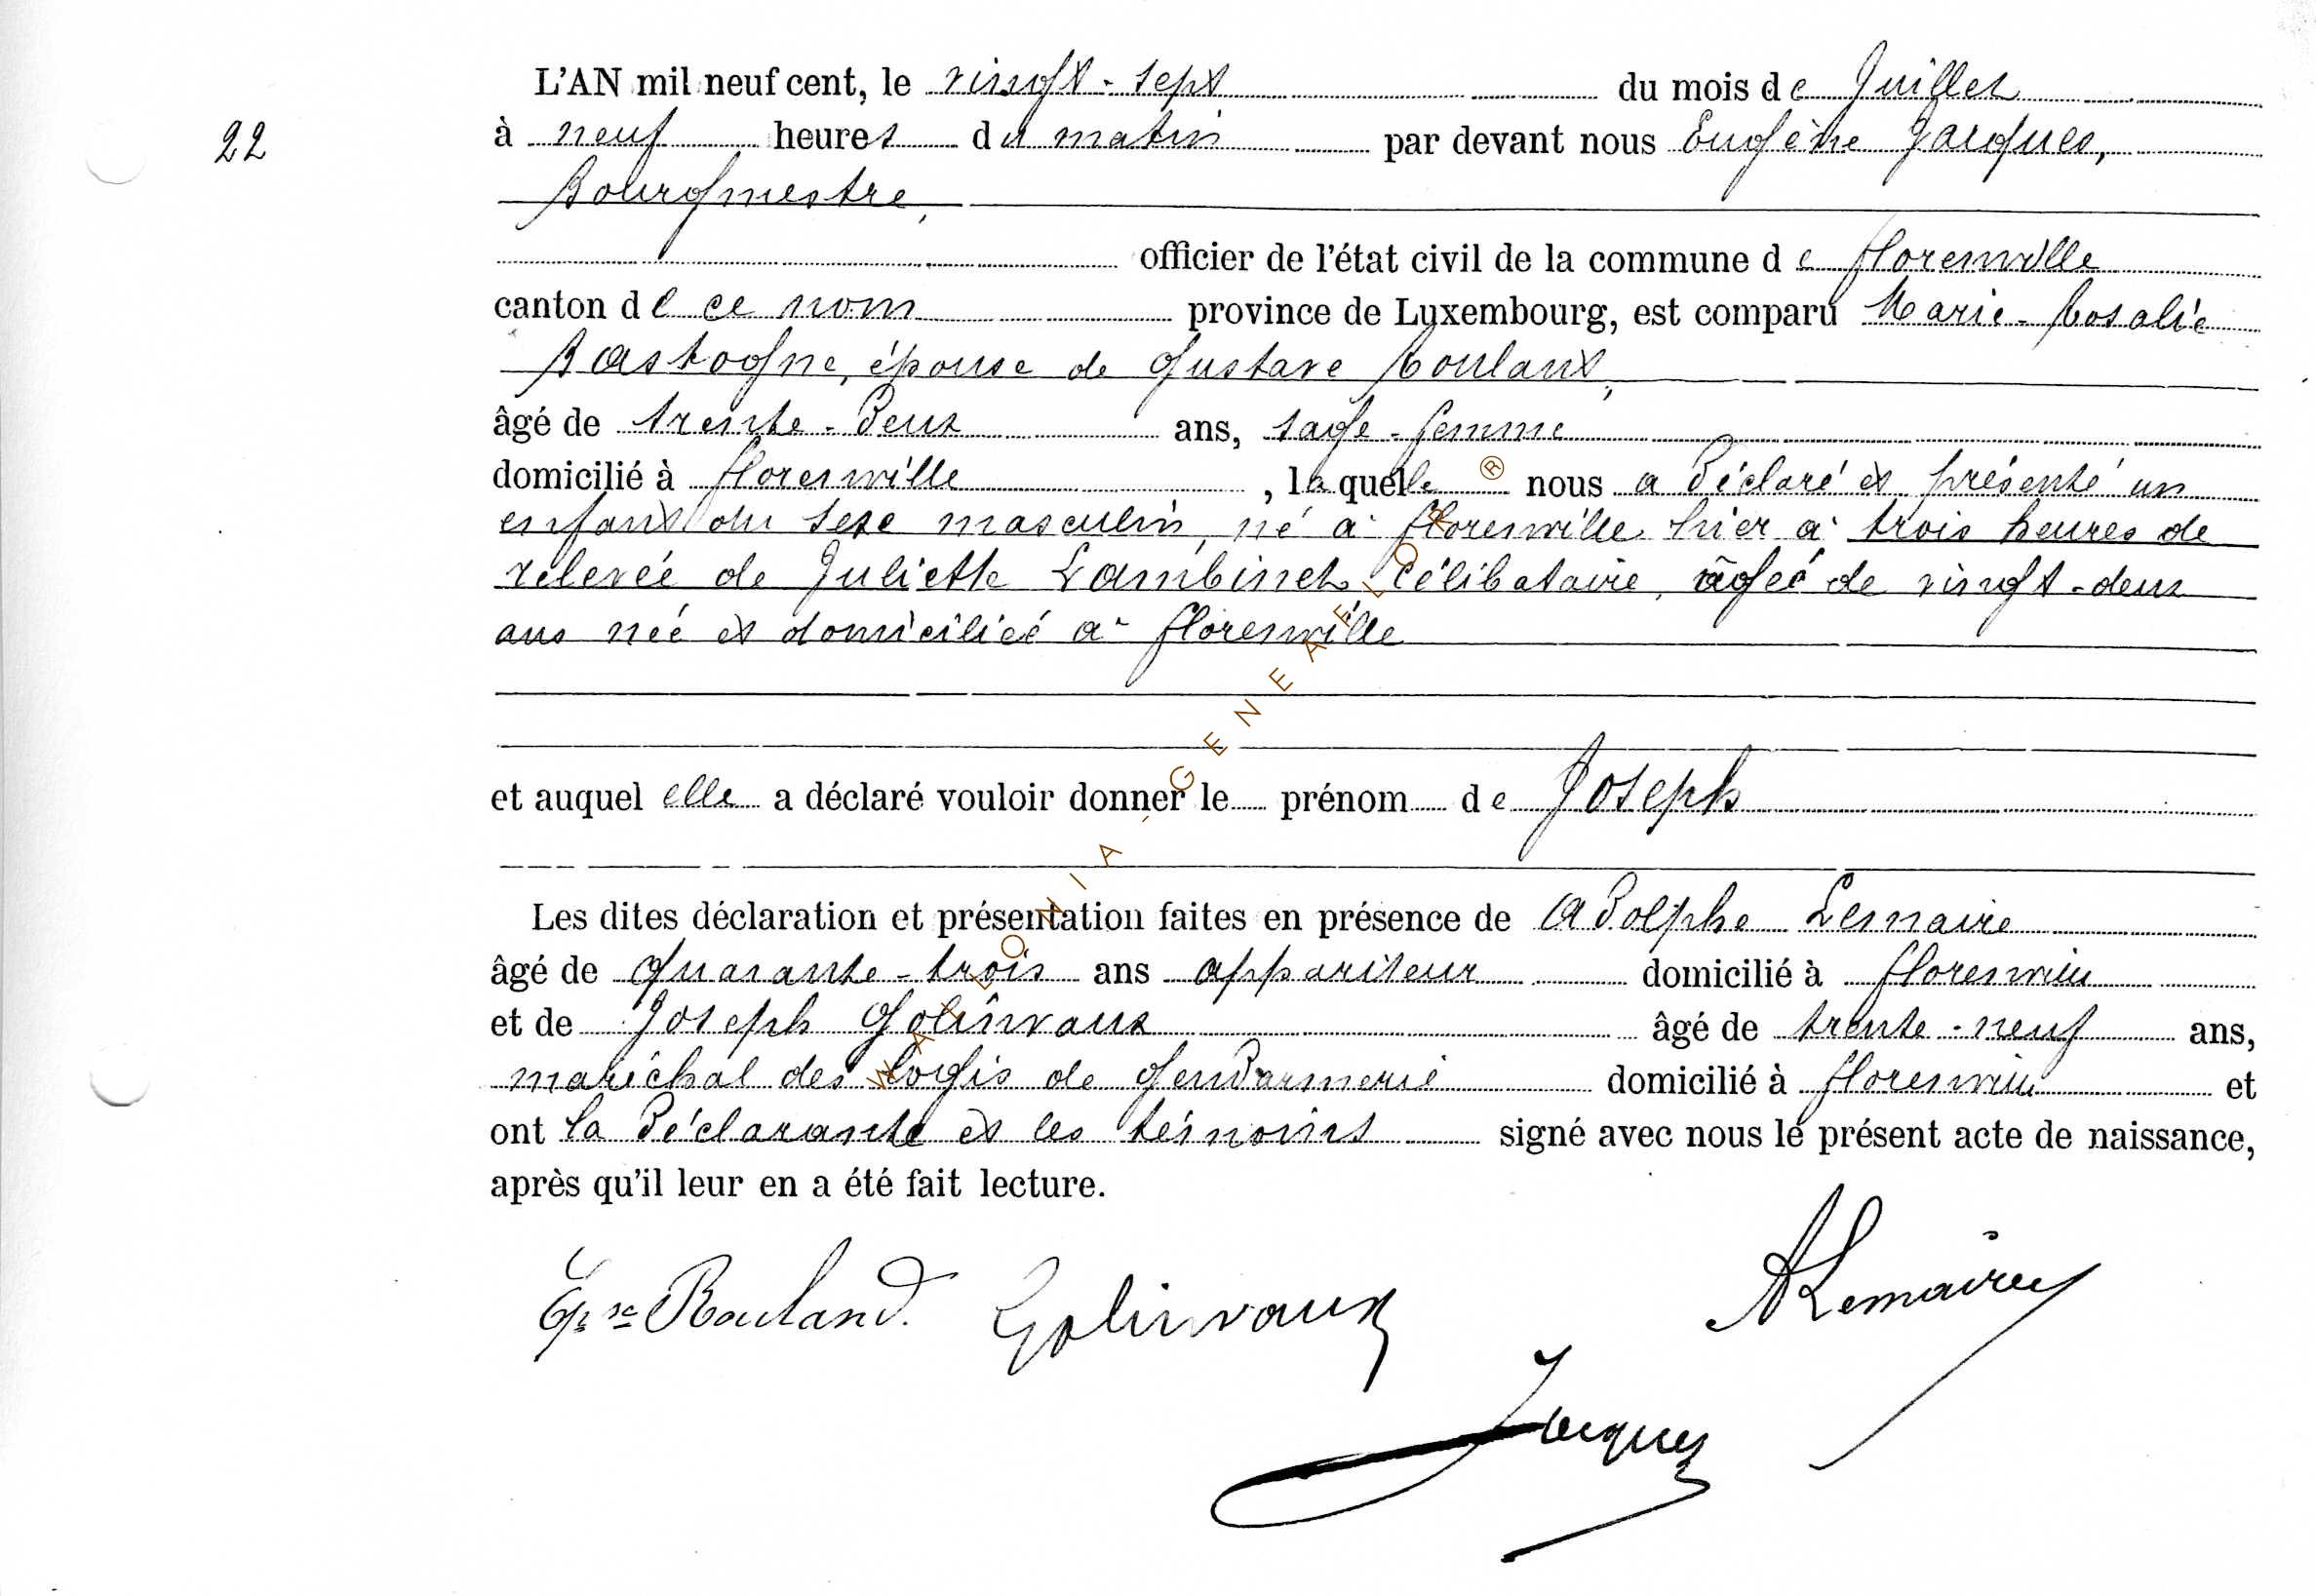 L'AN mil neuf cent, le vingt-sept du mois de Juillet
22
à neuf heures du matin par devant nous Eugène Jacques,
Bourgmestre,
officier de l'état civil de la commune de Florenville
canton de ce nom province de Luxembourg, est comparu Marie-Rosalie
Bastogne, épouse de Gustave Roulant,
âgé de trente-deux ans, sage-femme
domicilié à Florenville, laquelle nous a déclaré et présenté un
enfant du sexe masculin, né à Florenville hier à trois heures de
relevée de Juliette Lambinet célibataire, âgée de vingt-deux
ans née et domiciliée à Florenville
et auquel elle a déclaré vouloir donner le prénom de Joseph
Les dites déclaration et présentation faites en présence de Adolphe Lemaire
âgé de quarante-trois ans appariteur domicilié à Florenville
et de Joseph Golinvaux âgé de trente-neuf ans,
maréchal des logis de gendarmerie domicilié à Florenville et
ont la déclarante et les témoins signé avec nous le présent acte de naissance,
après qu'il leur en a été fait lecture.
Epse Rouland. Golinvaux ALemaire
Jacques
WALLONIA - GENEAFLOR ®